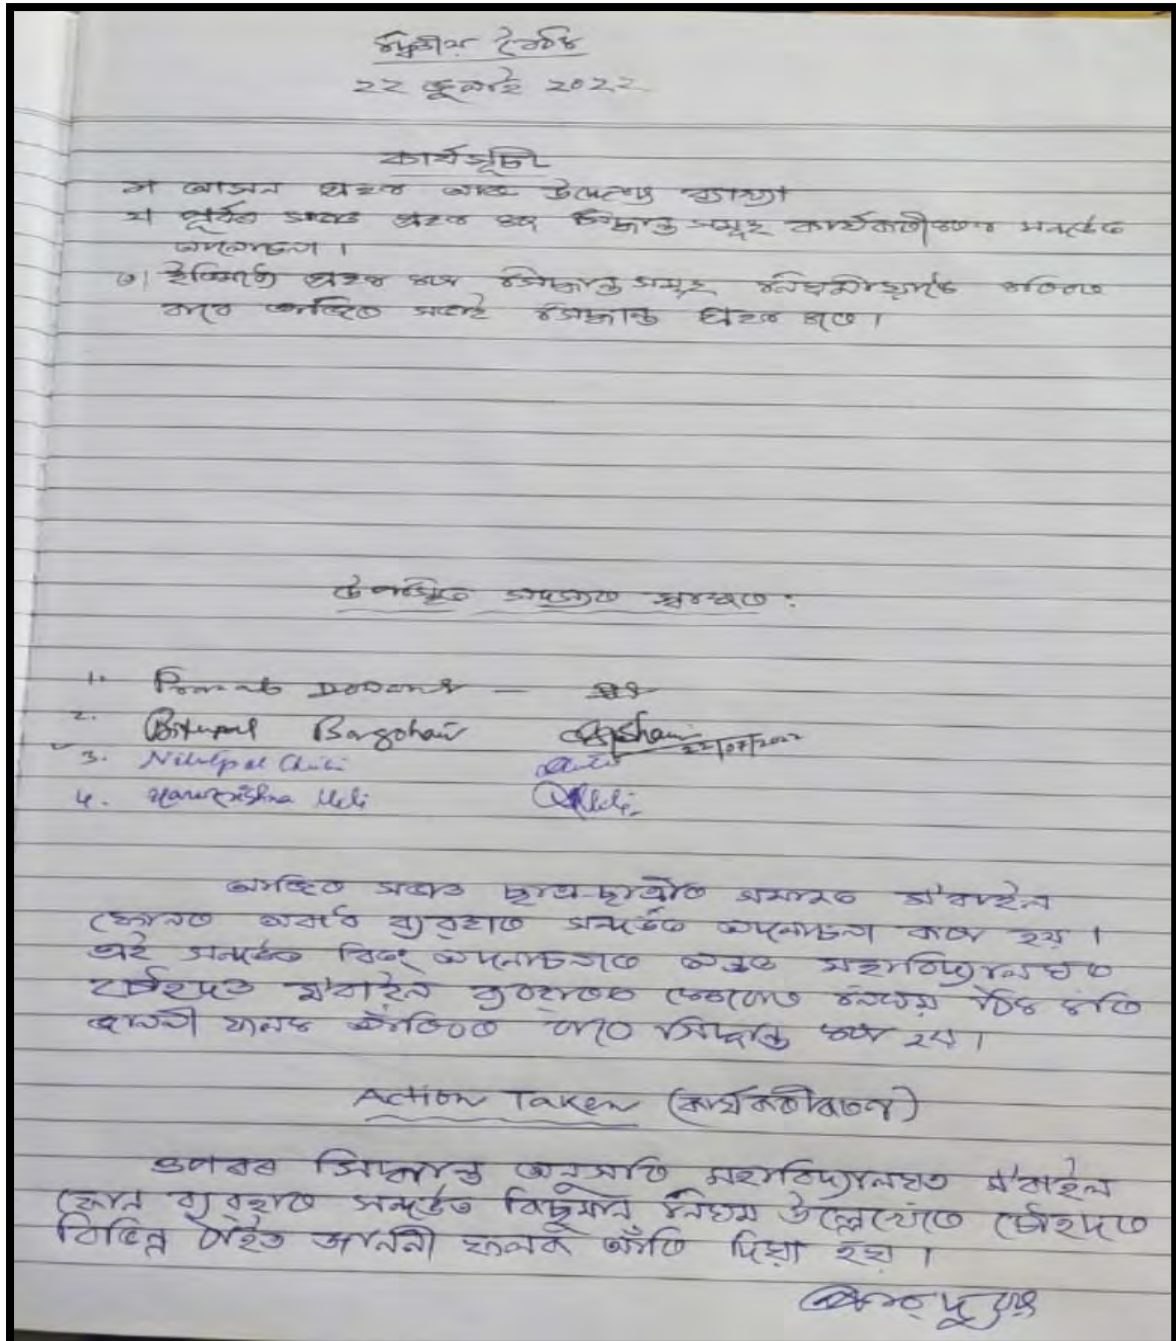 দ্বিতীয় বৈঠক
২২ জুলাই ২০২২
কাৰ্যসূচী
১। আসন গ্ৰহণ আৰু উদ্দেশ্য ব্যাখ্যা
২। পূৰ্বৰ সভাত গ্ৰহণ হোৱা সিদ্ধান্ত সমূহ কাৰ্যকৰীকৰণৰ সন্দৰ্ভত
আলোচনা।
৩। ইতিমধ্যে গ্ৰহণ কৰা সিদ্ধান্ত সমূহ
বাবে আজিৰ সভাই সিদ্ধান্ত গ্ৰহণ কৰে।
উপস্থিত সদস্যৰ স্বাক্ষৰ :
1.
2. Bitupul Borgohain 22/07/2022
3. Nilutpal Chutia
4. Harekrishna Mili
আজিৰ সভাত ছাত্ৰ-ছাত্ৰীৰ মাজত ম'বাইল
ফোনৰ অবাধ ব্যৱহাৰ সন্দৰ্ভত আলোচনা কৰা হয়।
এই সন্দৰ্ভত আলোচনাৰ অন্তত মহাবিদ্যালয়ৰ
চৌহদত ম'বাইল ব্যৱহাৰৰ ক্ষেত্ৰত নিয়ম ঠিক কৰি
জাননী ফলক আঁৰিবৰ বাবে সিদ্ধান্ত লোৱা হয়।
Action Taken (কাৰ্যকৰীকৰণ)
ওপৰৰ সিদ্ধান্ত অনুসৰি মহাবিদ্যালয়ত ম'বাইল
ফোন ব্যৱহাৰ সন্দৰ্ভত কিছুমান নিয়ম উল্লেখেৰে চৌহদৰ
বিভিন্ন ঠাইত জাননী ফলক আঁৰি দিয়া হয়।